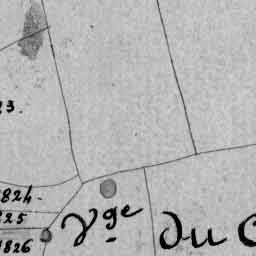 23.
824.
825
1826
Vge du